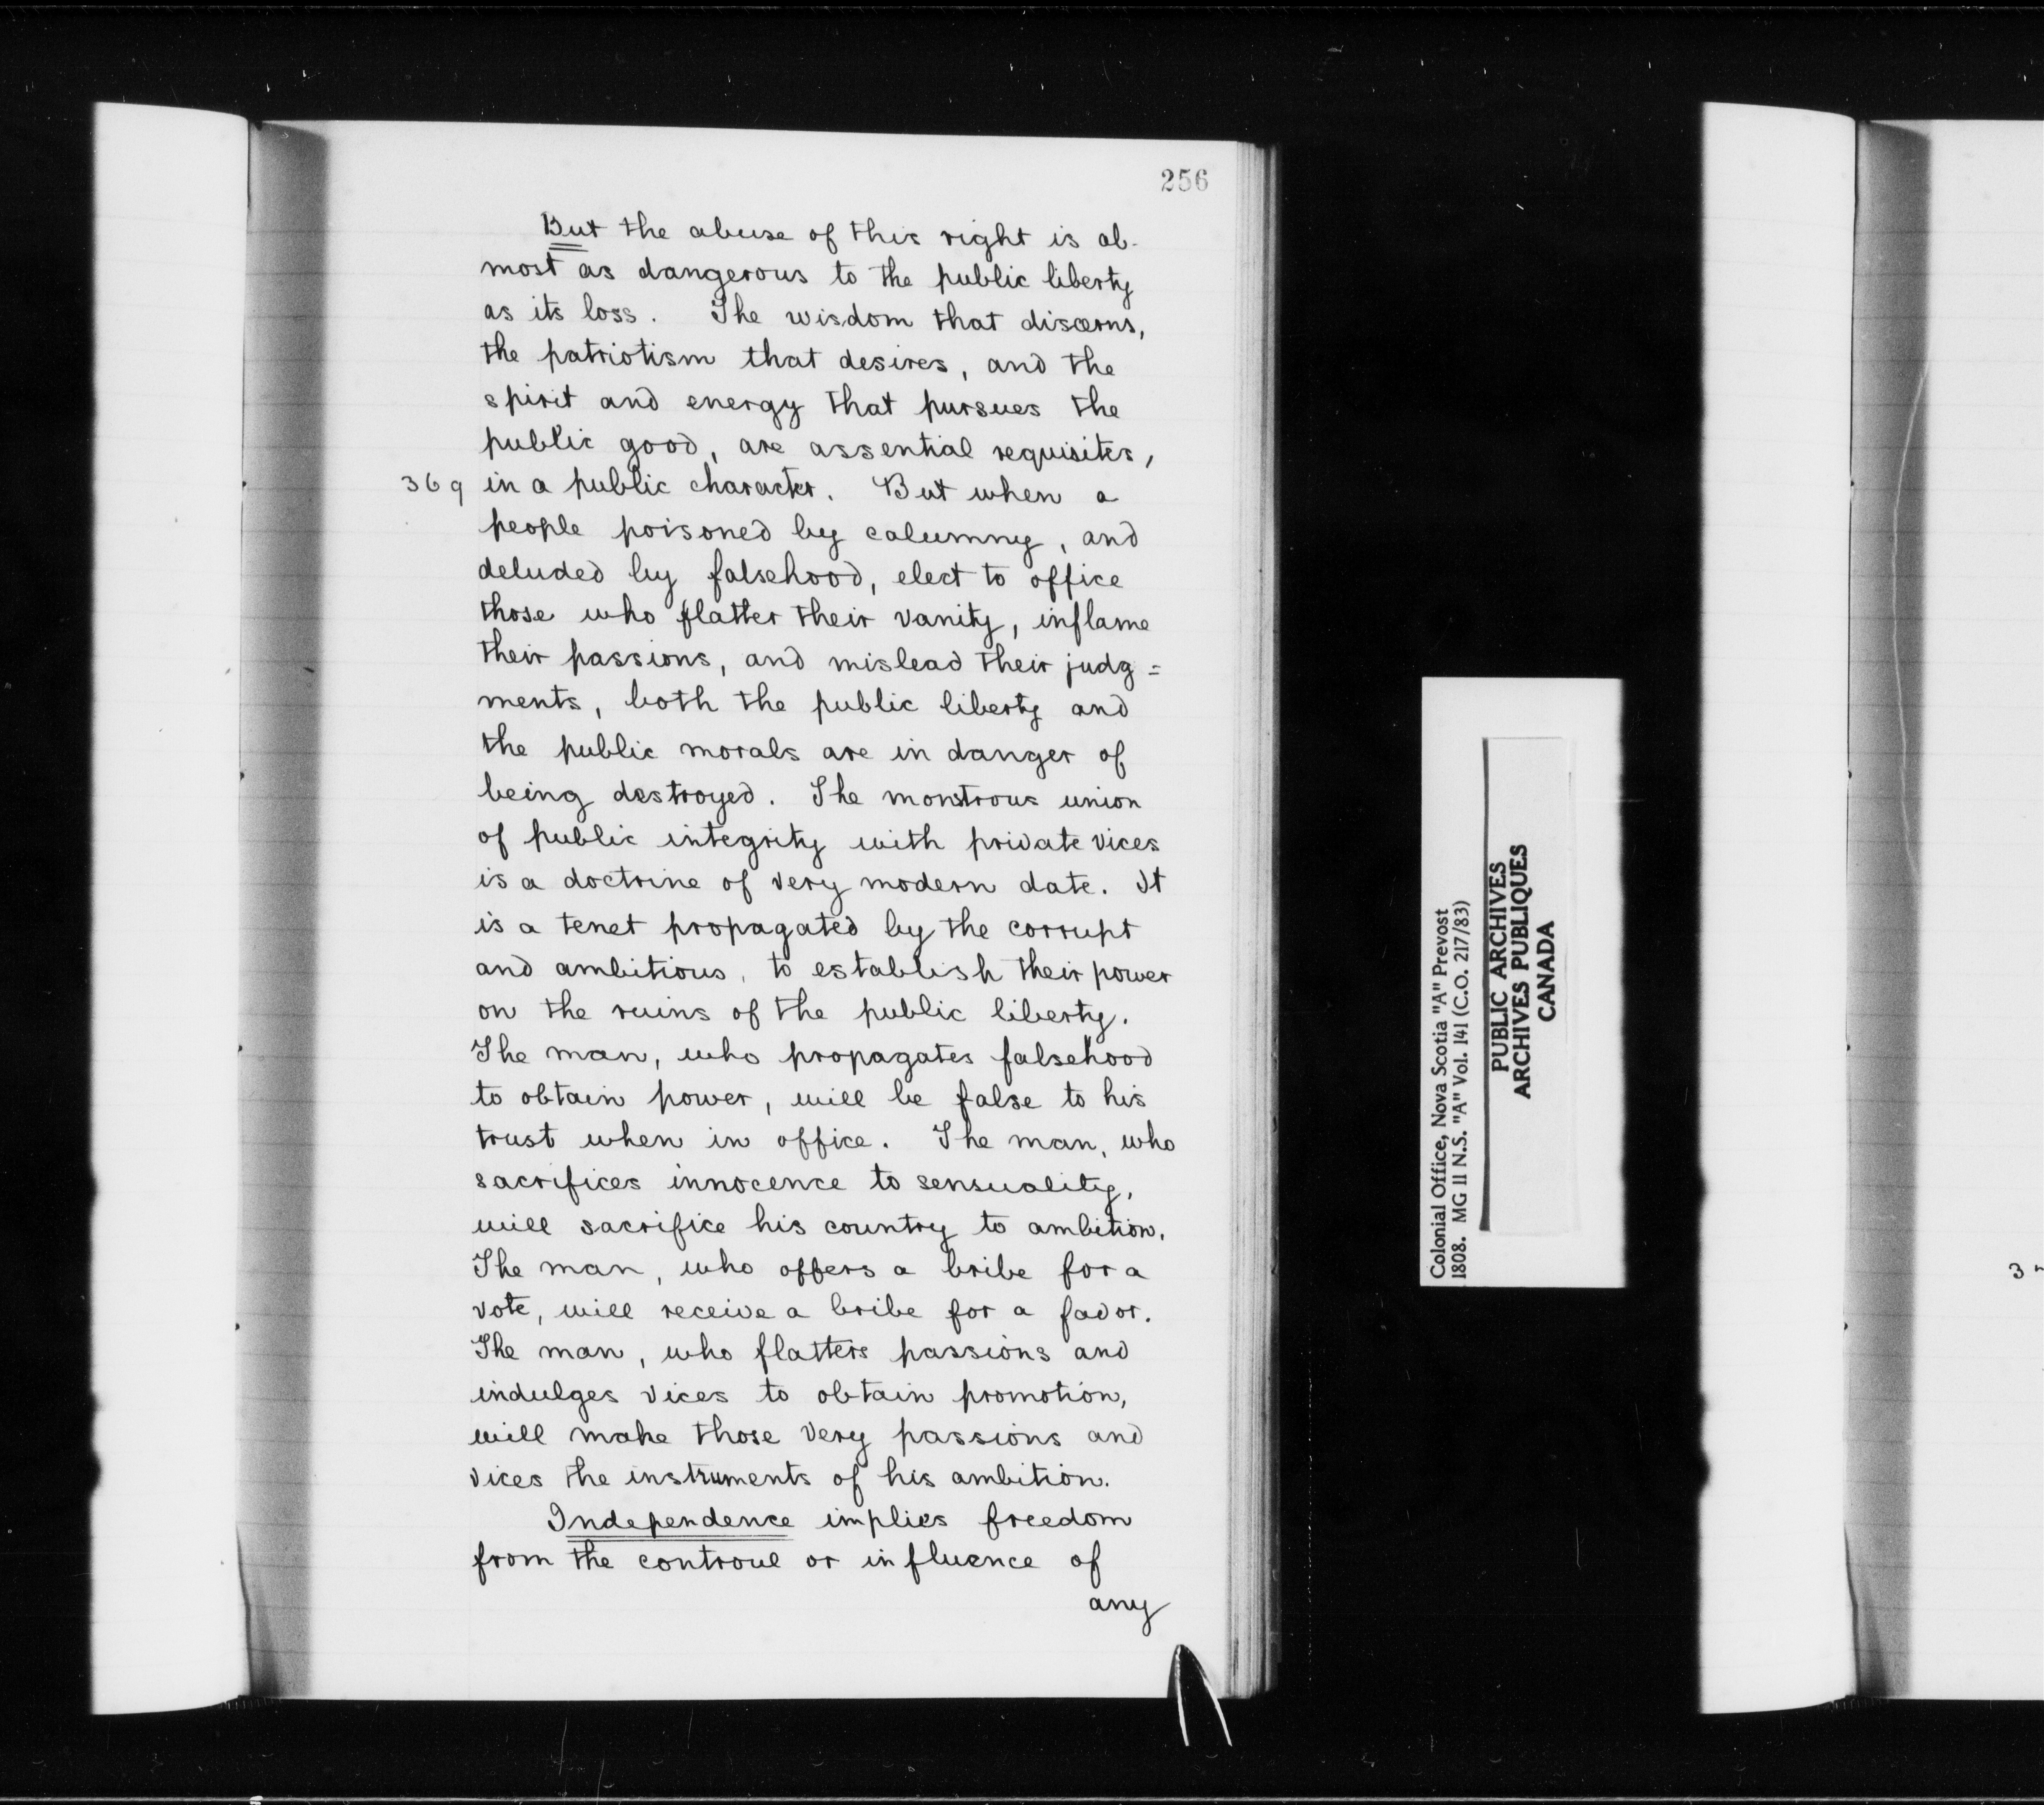 256
But the abuse of this right is al-
most as dangerous to the public liberty
as its loss. The wisdom that discerns,
the patriotism that desires, and the
spirit and energy that pursues the
public good, are assential requisites,
369 in a public character. But when a
people poisoned by calumny, and
deluded by falsehood, elect to office
those who flatter their vanity, inflame
their passions, and mislead their judg=
ments, both the public liberty and
the public morals are in danger of
being destroyed. The monstrous union
of public integrity with private vices
is a doctrine of very modern date. It
is a tenet propagated by the corrupt
and ambitious, to establish their power
on the ruins of the public liberty.
The man, who propagates falsehood
to obtain power, will be false to his
trust when in office. The man, who
sacrifices innocence to sensuality,
will sacrifice his country to ambition.
The man, who offers a bribe for a
vote, will receive a bribe for a favor.
The man, who flatters passions and
indulges vices to obtain promotion,
will make those very passions and
vices the instruments of his ambition.
Independence implies freedom
from the controul or influence of
any
Colonial Office, Nova Scotia "A" Prevost
1808. MG 11 N.S. "A" Vol. 141 (C.O. 217/83)
PUBLIC ARCHIVES
ARCHIVES PUBLIQUES
CANADA